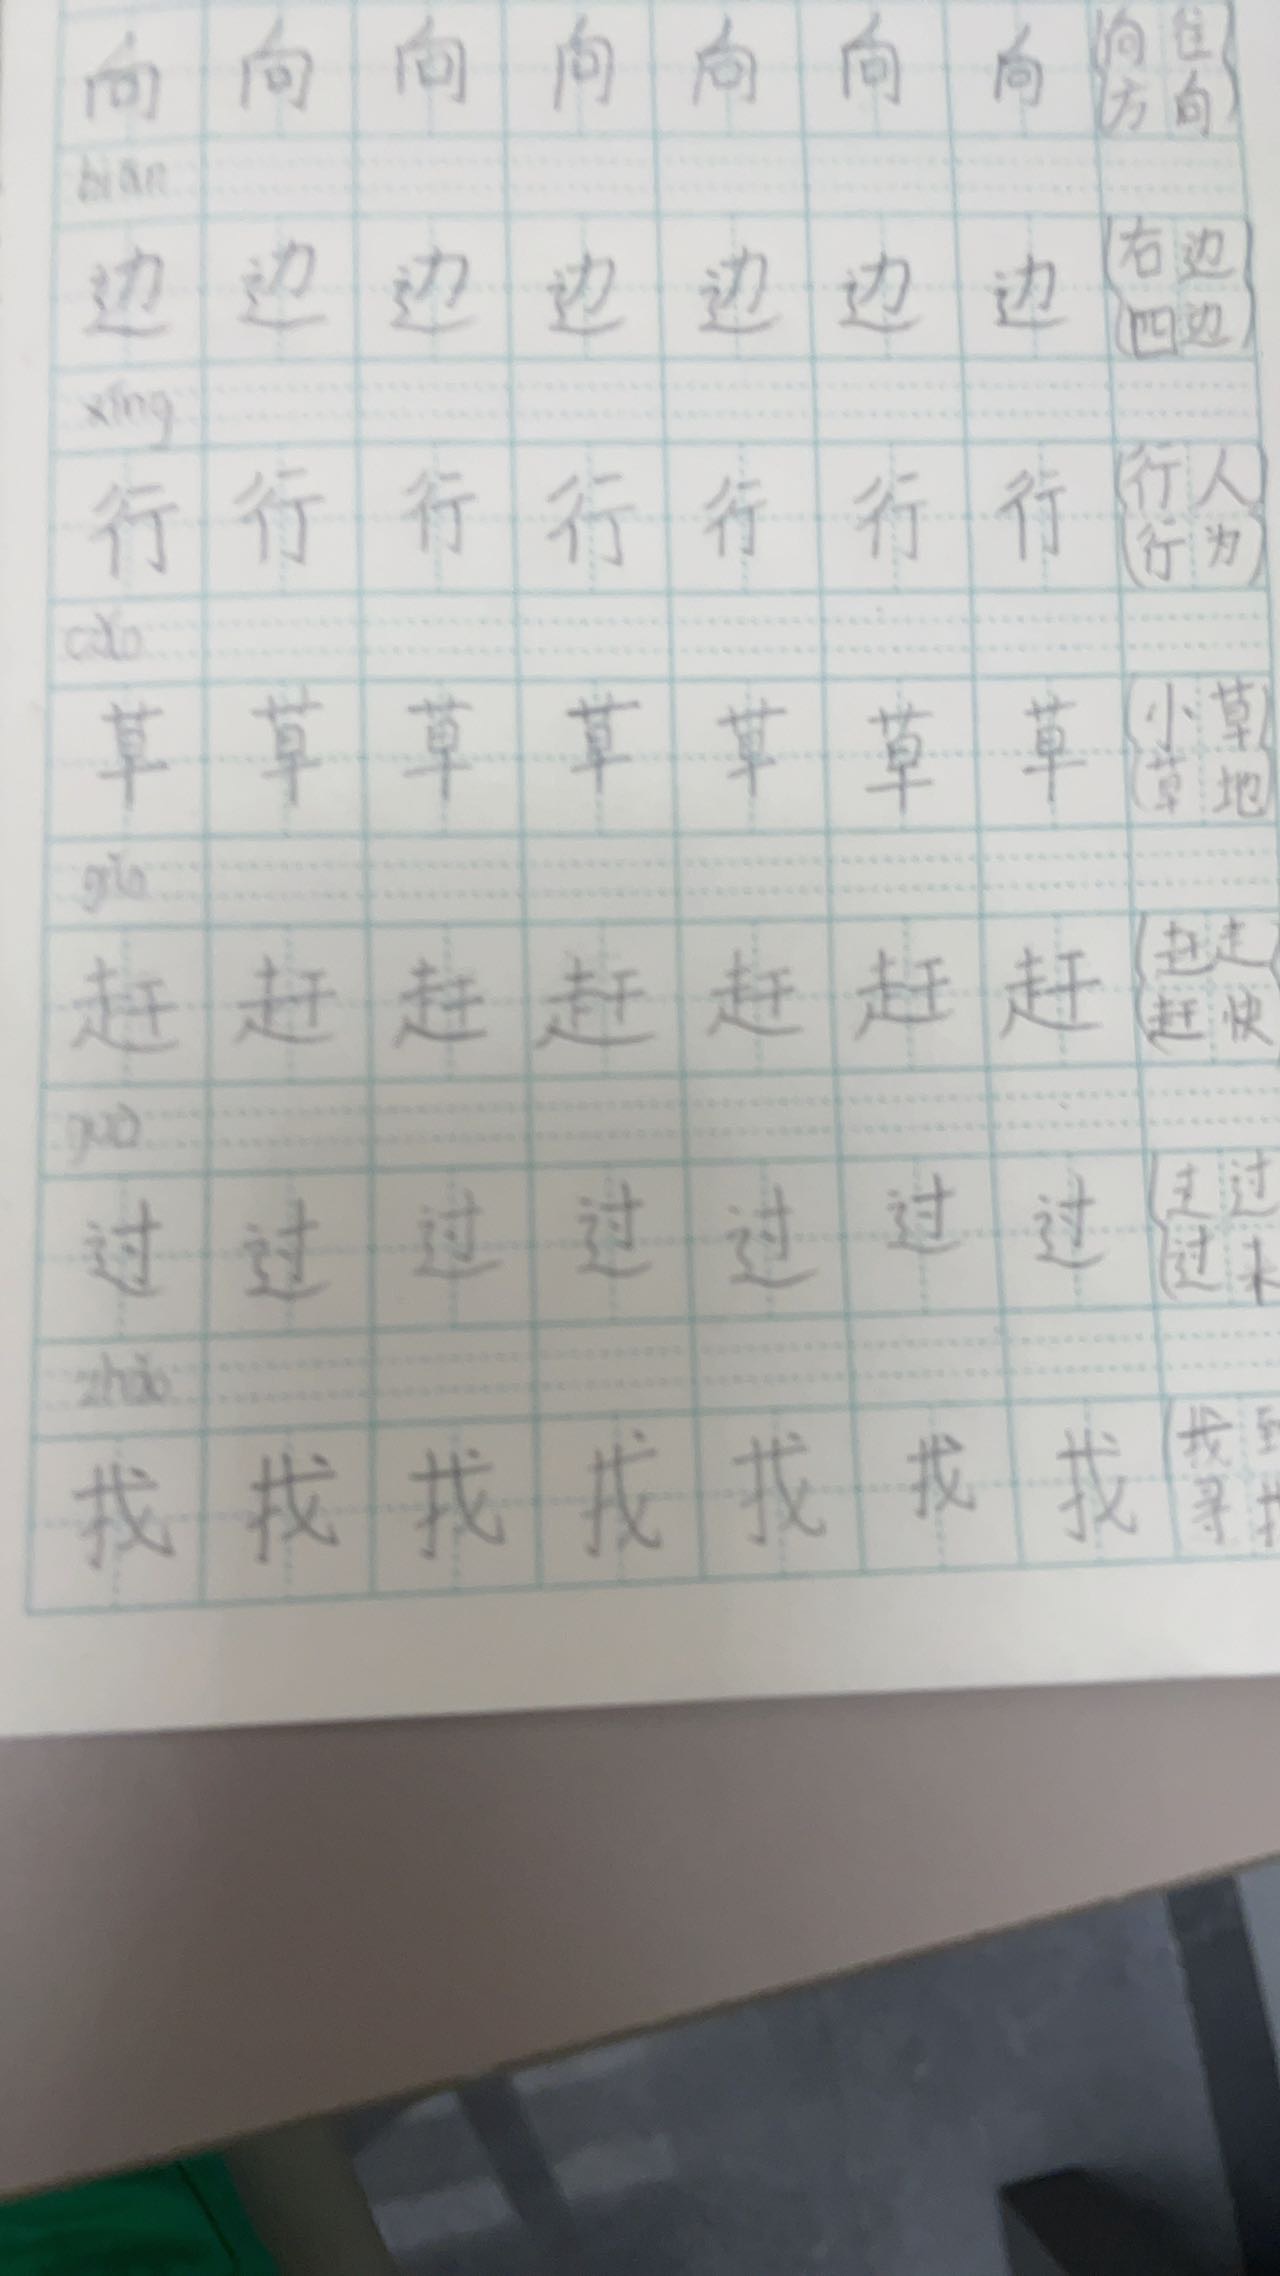 向 向 向 向 向 向 向 向往
方向
biān
边 边 边 边 边 边 边 右边
四边
xíng
行 行 行 行 行 行 行 行人
行为
cǎo
草 草 草 草 草 草 草 小草
草地
赶 赶 赶 赶 赶 赶 赶 赶走
赶快
guò
过 过 过 过 过 过 过 走过
过来
zhǎo
找 找 找 找 找 找 找 找到
寻找